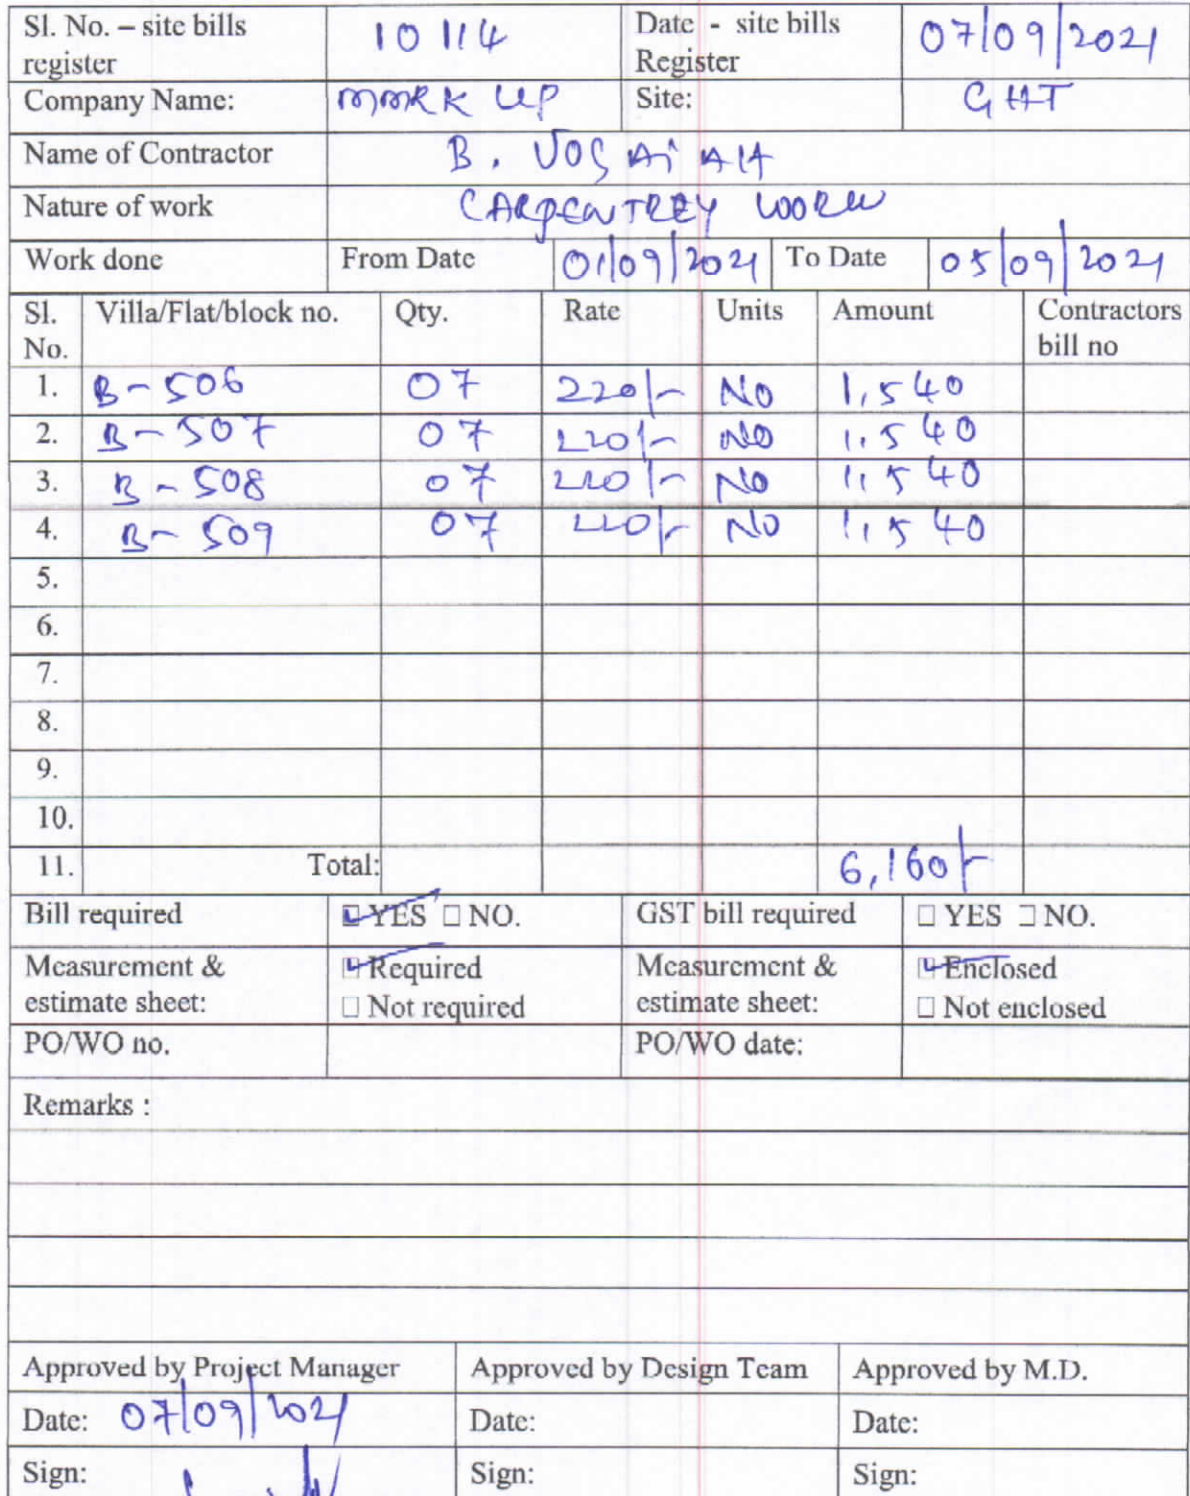 Sl. No. – site bills register 10114 Date - site bills Register 07/09/2021
Company Name: MMRK LLP Site: GHT
Name of Contractor B.
Nature of work CARPENTREY WORK
Work done From Date 01/09/2021 To Date 05/09/2021
Sl. No. Villa/Flat/block no. Qty. Rate Units Amount Contractors bill no
1. B-506 07 220/- NO 1,540
2. B-507 07 220/- NO 1,540
3. B-508 07 220/- NO 1,540
4. B-509 07 220/- NO 1,540
5.
6.
7.
8.
9.
10.
11. Total: 6,160/-
Bill required YES NO. GST bill required YES NO.
Measurement & estimate sheet: Required Not required Measurement & estimate sheet: Enclosed Not enclosed
PO/WO no. PO/WO date:
Remarks :
Approved by Project Manager Approved by Design Team Approved by M.D.
Date: 07/09/2021 Date: Date:
Sign: Sign: Sign: